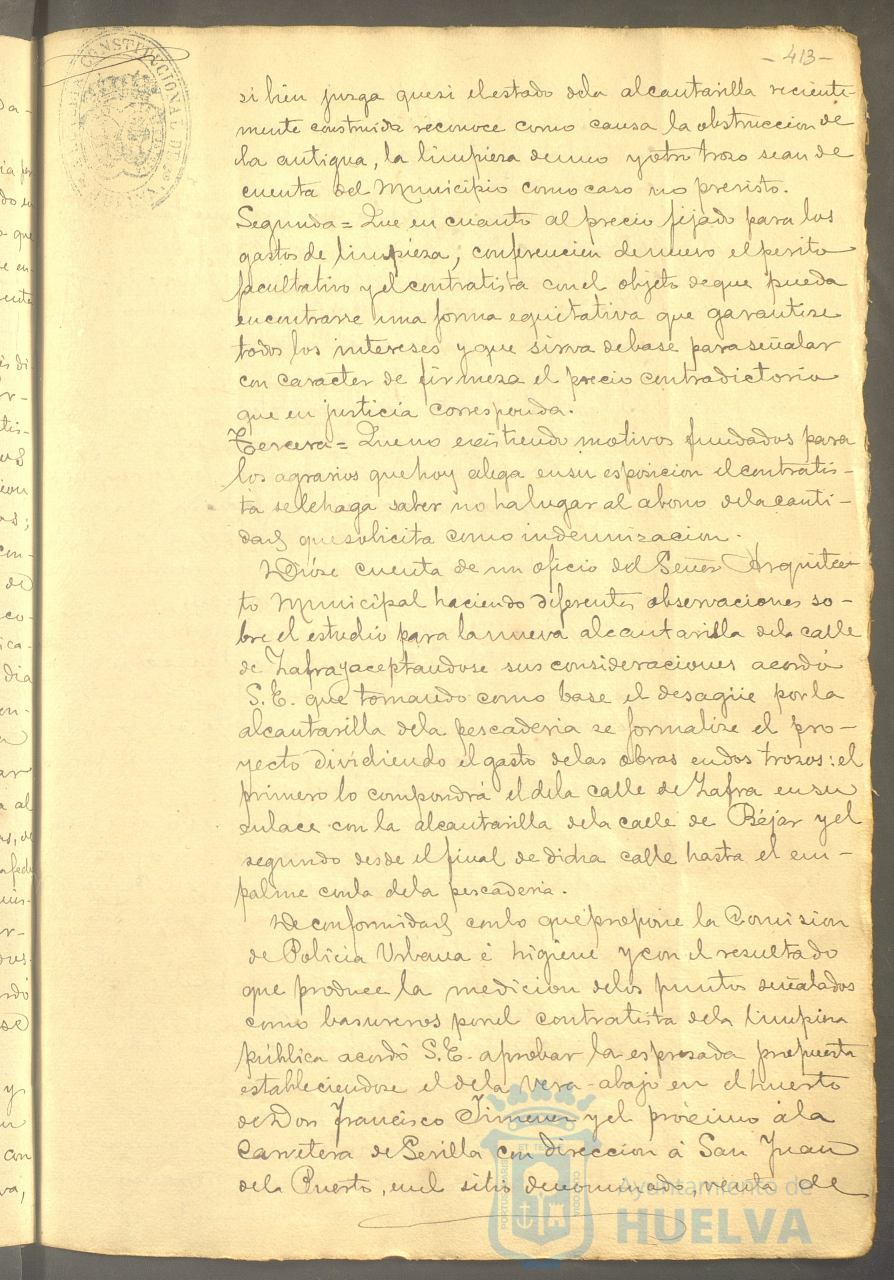 - 413 -
CONSTITUCIONAL DE
si bien juzga que si el estado de la alcantarilla reciente-
mente construida reconoce como causa la obstruccion de
la antigua, la limpieza de uno y otro trozo sean de
cuenta del Municipio como caso no previsto.
Segunda = Que en cuanto al precio fijado para los
gastos de limpieza, conferencien de nuevo el perito
facultativo y el contratista con el objeto de que pueda
encontrarse una forma equitativa que garantise
todos los intereses y que sirva de base para señalar
con caracter de firmeza el precio contradictorio
que en justicia corresponda.
Tercera = Que no existiendo motivos fundados para
los agravios que hoy alega en su esposicion el contratis-
ta se le haga saber no ha lugar al abono de la canti-
dad que solicita como indemnizacion.
Dióse cuenta de un oficio del Señor Arquitec-
to Municipal haciendo diferentes observaciones so-
bre el estudio para la nueva alcantarilla de la calle
de Zafra y aceptandose sus consideraciones acordó
S.E. que tomando como base el desagüe por la
alcantarilla de la pescaderia se formalize el pro-
yecto dividiendo el gasto de las obras en dos trozos: el
primero lo compondrá el de la calle de Zafra en su
enlace con la alcantarilla de la calle de Béjar y el
segundo desde el final de dicha calle hasta el em-
palme con la de la pescaderia.
De conformidad con lo que propone la Comision
de Policia Urbana é higiene y con el resultado
que produce la medicion de los puntos señalados
como basureros por el contratista de la limpieza
pública acordó S.E. aprobar la espresada propuesta
estableciendose el de la Vera-abajo en el huerto
de Don Francisco Jimenez y el próximo á la
Carretera de Sevilla con direccion á San Juan
del Puerto, en el sitio denominado, venta de
Ayuntamiento de
HUELVA